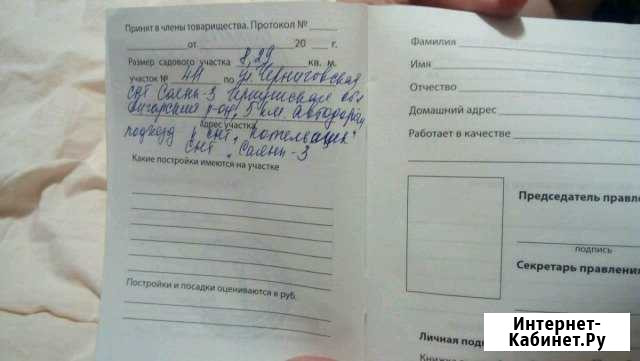 Принят в члены товарищества. Протокол №
от 20 г.
Размер садового участка 8,29 кв. м.
участок № 411 по ул Черниговская
снт Саяны-3 Иркутская обл
Ангарский р-он, 5 км. автодороги
Адрес участка
подъезд к снт "
СНТ "Саяны-3
Какие постройки имеются на участке
Постройки и посадки оцениваются в руб.
Фамилия
Имя
Отчество
Домашний адрес
Работает в качестве
Председатель правл
подпись
Секретарь правления
Личная подп
Книжка
Интернет-
Кабинет.Ру